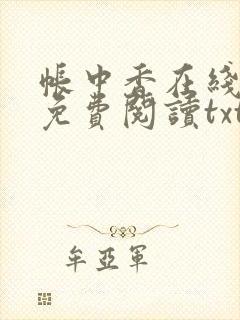 帳中香在綫
免費閱讀txt
牟亞軍